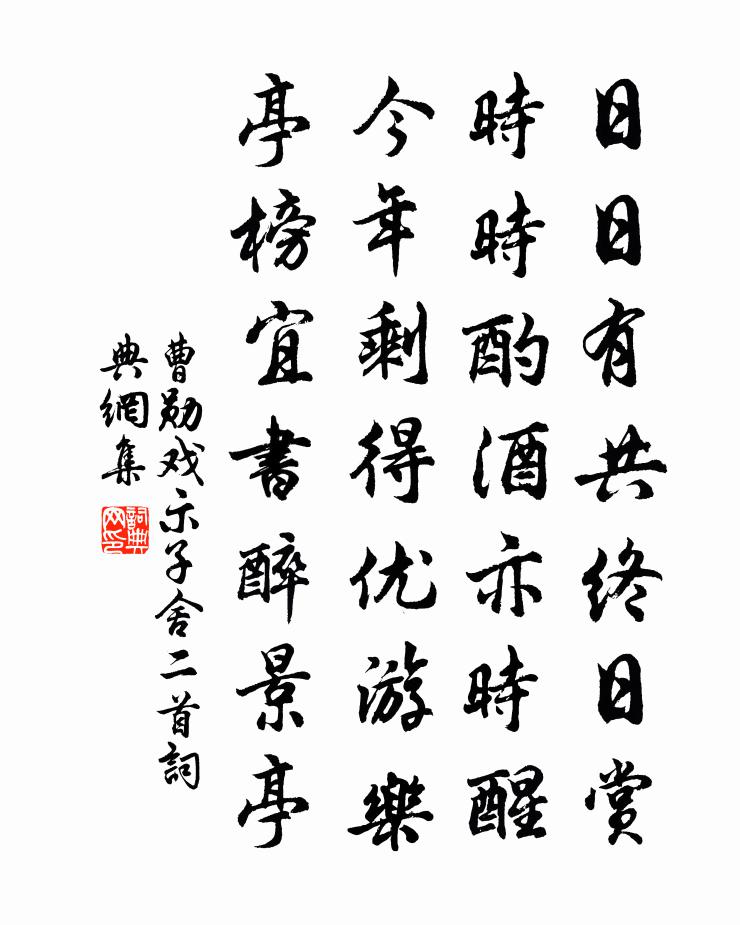 日日有共终日赏
時時酌酒亦時醒
今年剩得优游樂
亭榜宜書醉景亭
曹勋戏示子舍二首詞
典網集
詞典
网印